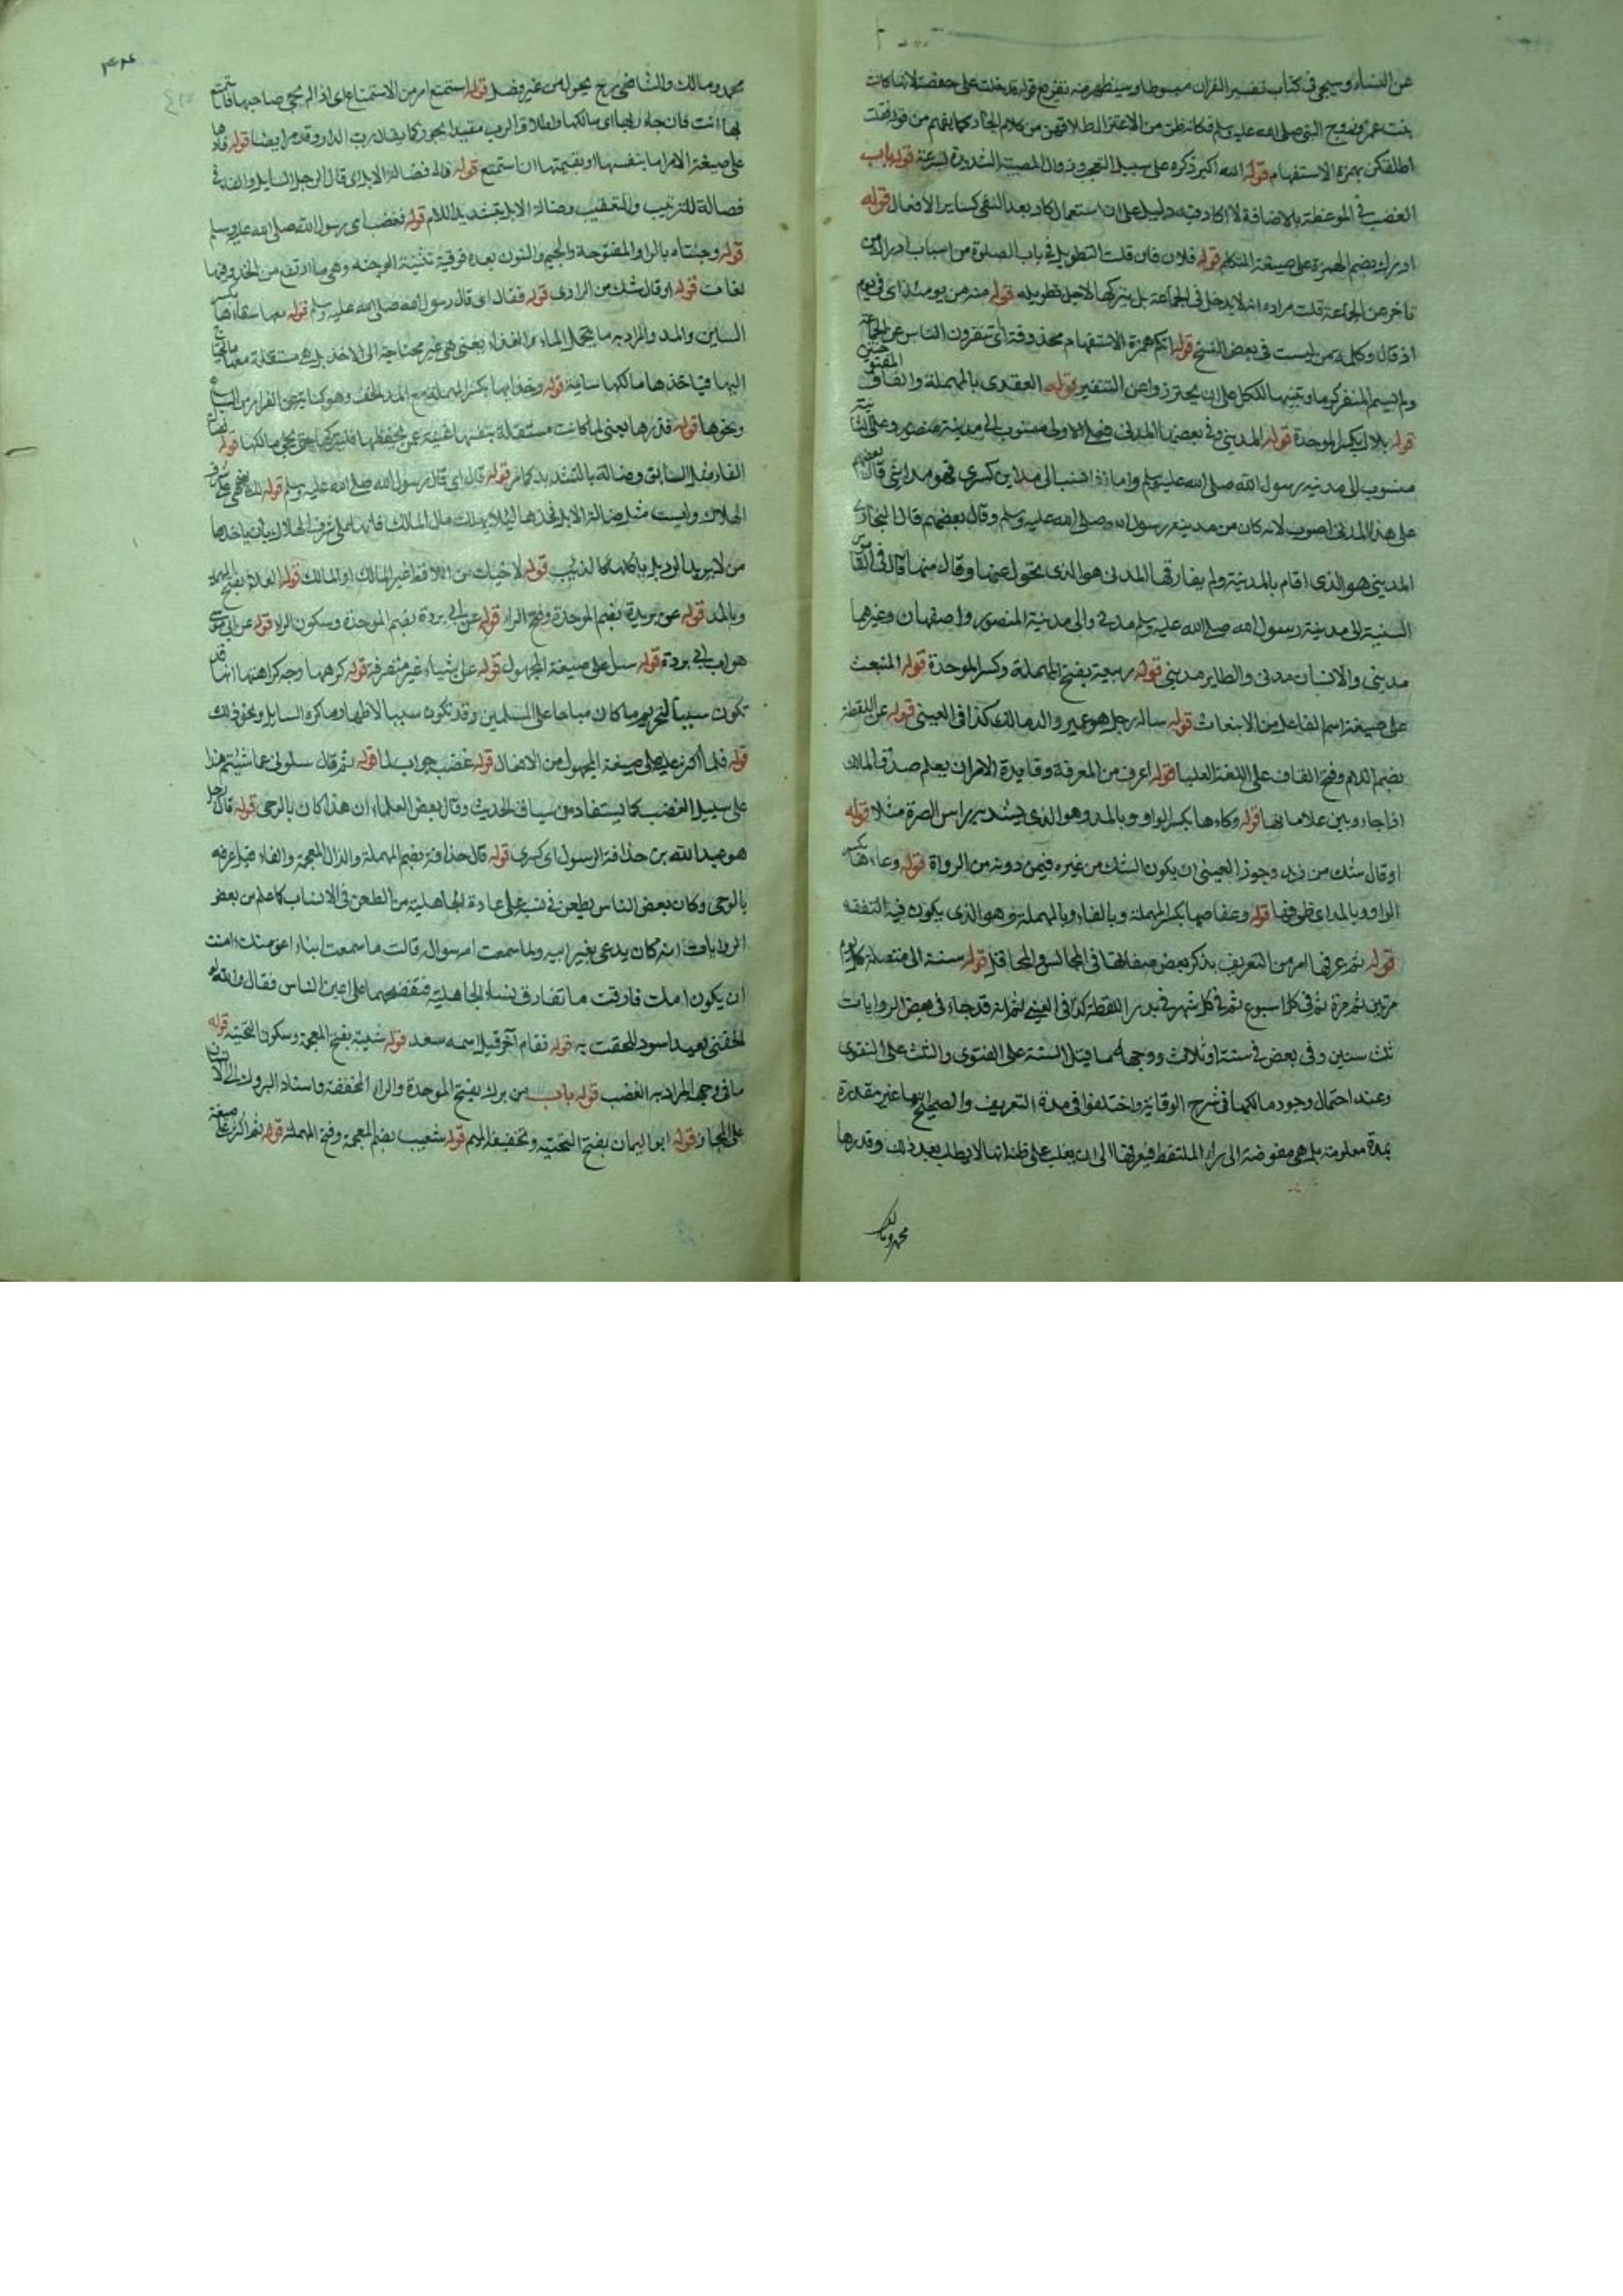 عن النساء وسيجئ فى كتاب تفسير القران مبسوطا وسيظهر منه تفريع قوله فدخلت على حفصة لانها كانت
بنت عمر وزوج النبى صلى الله عليه وسلم فكانه ظن من الاعتزال طلاقهن من كلام الجار كما يفهم من قوله فقلت
اطلقكن بهمزة الاستفهام قوله الله اكبر ذكره على سبيل التعجب وزوال المصيبة الشديدة بسرعة قوله باب
الغضب فى الموعظة بالاضافة لا اكاد فيه دليل على ان استعمال كاد بعد النفى كساير الافعال قوله
ادرك بضم الهمزة على صيغة المتكلم قوله فلان فان قلت التطويل فى باب الصلوة من اسباب ادراك من
تاخر عن الجماعة قلت مراده انه لا يدخل فى الجماعة بل يتركها لاجل تطويله قوله منه من يومئذ اى فى يوم
اذ قال وكلمة من ليست فى بعض النسخ قوله انكم همزة الاستفهام محذوفة اى تنفرون الناس عن الجماعة
ولم يسم المنفر كرما وتنبيها للكل على ان يحترزوا عن التنفير قوله العقدى بالمهملة والقاف
قوله بلال بكسر الموحدة قوله المدينى وفى بعضها المدنى فعلى الاولى منسوب الى مدينة منصور وعلى الثانية
منسوب الى مدينة رسول الله صلى الله عليه وسلم واما اذا نسب الى مداين كسرى فهو مداينى قال بعضهم
على هذا المدنى اصوب لانه كان من مدينة رسول الله صلى الله عليه وسلم وقال بعضهم قال البخارى
المدينى هو الذى اقام بالمدينة ولم يفارقها المدنى هو الذى تحول عنها وقال منها قال فى القاموس
النسبة الى مدينة رسول الله صلى الله عليه وسلم مدنى والى مدينة المنصور واصفهان وغيرهما
مدينى والانسان مدنى والطاير مدينى قوله ربيعة بفتح المهملة وكسر الموحدة قوله المنبعث
على صيغة اسم الفاعل من الانبعاث قوله ساله رجل هو عمير والد مالك كذا فى العينى قوله عن اللقطة
بضم اللام وفتح القاف على اللغة العليا قوله اعرف من المعرفة وفايدة الامر ان يعلم صدق المالك
اذا جاء وبين علاماتها قوله وكاءها بكسر الواو وبالمد وهو الذى يشد به راس الصرة مثلا قوله
او قال شك من زيد وجوز العينى ان يكون الشك من غيره فيمن دونه من الرواة قوله وعاءها بكسر
الواو وبالمد اى ظرفها قوله وعفاصها بكسر المهملة وبالفاء وبالمهملة وهو الذى يكون فيه النفقة
قوله ثم عرفها امر من التعريف بذكر بعض صفاتها فى المجالس والمحافل قوله سنة الى متصلة كل يوم
مرتين ثم مرة ثم فى كل اسبوع ثم فى كل شهر فى بدر اللقطة كذا فى العينى ثم انه قد جاء فى بعض الروايات
ثلث سنين وفى بعض فى سنة او ثلاث ووجههما قيل السنة على الفتوى والثلث على التقوى
وعند احتمال وجود مالكها فى شرح الوقاية واختلفوا فى مدة التعريف والصحيح انها غير مقدرة
بمدة معلومة بل هى مفوضة الى راى الملتقط فيعرفها الى ان يغلب على ظنه انها لا يطلب بعد ذلك وقدرها
محمد ومالك
٣٢٤
محمد ومالك والشافعى رح بحول من غير فصل قوله استمتع امر من الاستمتاع اى اذا لم يجئ صاحبها فاستمتع
بها انت فان جاء ربها اى مالكها واطلاق الرب مقيدا يجوز كما يقال رب الدار وقد مر ايضا قوله فادها
على صيغة الامر اما بنفسها او بقيمتها ان استمتع قوله قال فضالة الابل اى قال الرجل السايل والفاء فى
فضالة للترتيب والتعقيب وضالة الابل بتشديد اللام قوله فغضب اى رسول الله صلى الله عليه وسلم
قوله وجنتاه بالواو المفتوحة والجيم والنون بعده فوقية تثنية الوجنة وهى ما ارتفع من الخد وفيها
لغات قوله او قال شك من الراوى قوله فقال اى قال رسول الله صلى الله عليه وسلم قوله معها سقاءها بكسر
السين والمد والمراد به ما يحمل الماء والغذاء يعنى هى غير محتاجة الى الاخذ بل هى مستقلة معها ما يحتاج
اليها فياخذها مالكها ساعة قوله وحذاءها بكسر المهملة مع المد الخف وهو كناية عن الفرار من السباع
ونحوها قوله فذرها يعنى لما كانت مستقلة بنفسها غنية عن يحفظها فليتركها حتى يجئ مالكها قوله
الفاء مثل السابق وضالة بالتشديد كما مر قوله قال اى قال رسول الله صلى الله عليه وسلم قوله لك
الهلاك وليست مثل ضالة الابل فخذها لئلا يهلك مال المالك فانها على شرف الهلاك بان ياخذها
وبالمد قوله عن بريد بضم الموحدة وفتح الراء قوله عن ابى بردة بضم الموحدة وسكون الراء قوله عن ابى موسى
هو اب ابى بردة قوله سئل على صيغة المجهول قوله عن اشياء غير منصرفة قوله كرهها وجه كراهتها انها قد
تكون سببا لتحريم ما كان مباحا على المسلمين وقد تكون سببا لاظهار ما كره السايل ونحو ذلك
قوله فلما اكثر عليه على صيغة المجهول من الافعال قوله غضب جواب لما قوله ثم قال سلونى عما شئتم هذا
على سبيل الغضب كما يستفاد من سياق الحديث وقال بعض العلماء ان هذا كان بالوحى قوله قال رجل
هو عبد الله بن حذافة الرسول اى كسرى قوله قال حذافة بضم المهملة والذال المعجمة والفاء قيل عرفه
بالوحى وكان بعض الناس يطعن فى نسبه على عادة الجاهلية من الطعن فى الانساب كما علم من بعض
الروايات انه كان يدعى بغير ابيه ولما سمعت ام سوال قالت ما سمعت ابناء اعق منك امنت
ان يكون امك فارقت ما تفارق نساء الجاهلية فتفضحهما على اعين الناس فقال والله لو
الحقنى بعبد اسود للحقت به قوله فقام آخر قيل اسمه سعد قوله شيبة بفتح المعجمة وسكون التحتية قوله
ما فى وجهه المراد به الغضب قوله باب من برك بفتح الموحدة والراء المخففة واسناد البروك الى الانسان
على المجاز قوله ابو اليمان بفتح التحتية وتخفيف الميم قوله شعيب بضم المعجمة وفتح المهملة قوله ثم اكثر على صيغة